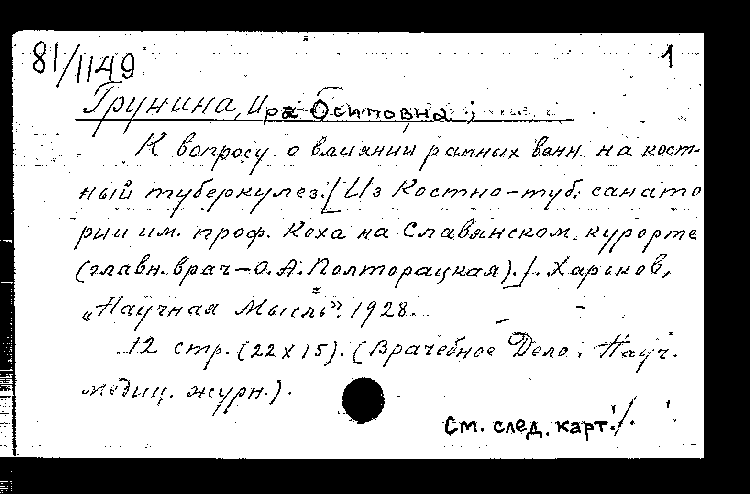 81/1149
1
Грунина, Ира Осиповна;
К вопросу о влиянии рапных ванн на кост-
ный туберкулез. [Из Костно-туб. санато
рии им. проф. Коха на Славянском курорте
(главн. врач - О. А. Полторацкая)./. Харьков,
„Научная Мысль". 1928.
12 стр. (22 x 15). (Врачебное Дело. Науч.
медиц. журн.).
См. след. карт./.